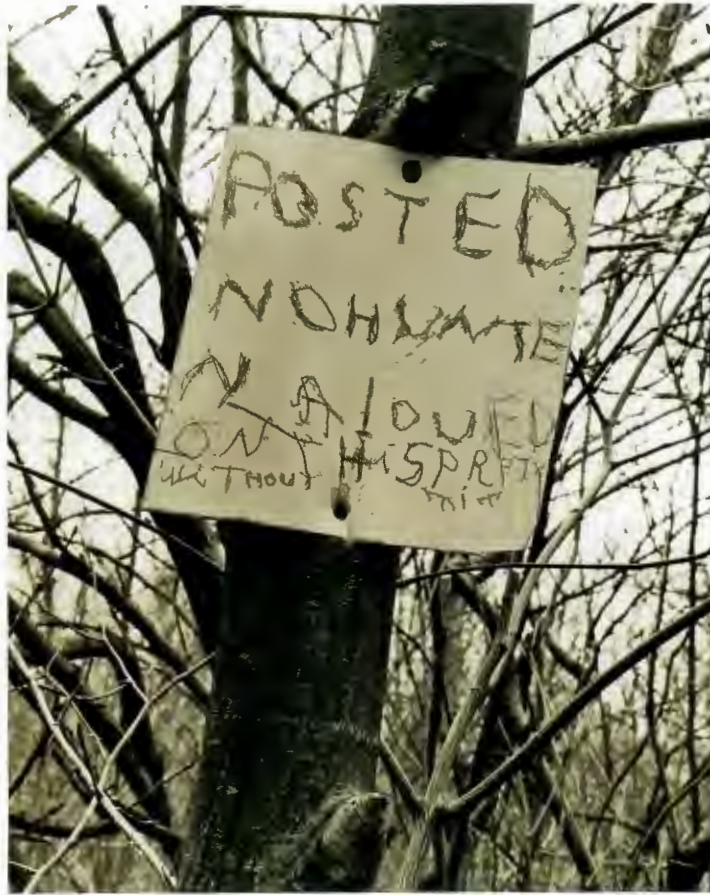 POSTED
NO HUNTE
N ALOUED
ON THIS PR
WITHOUT